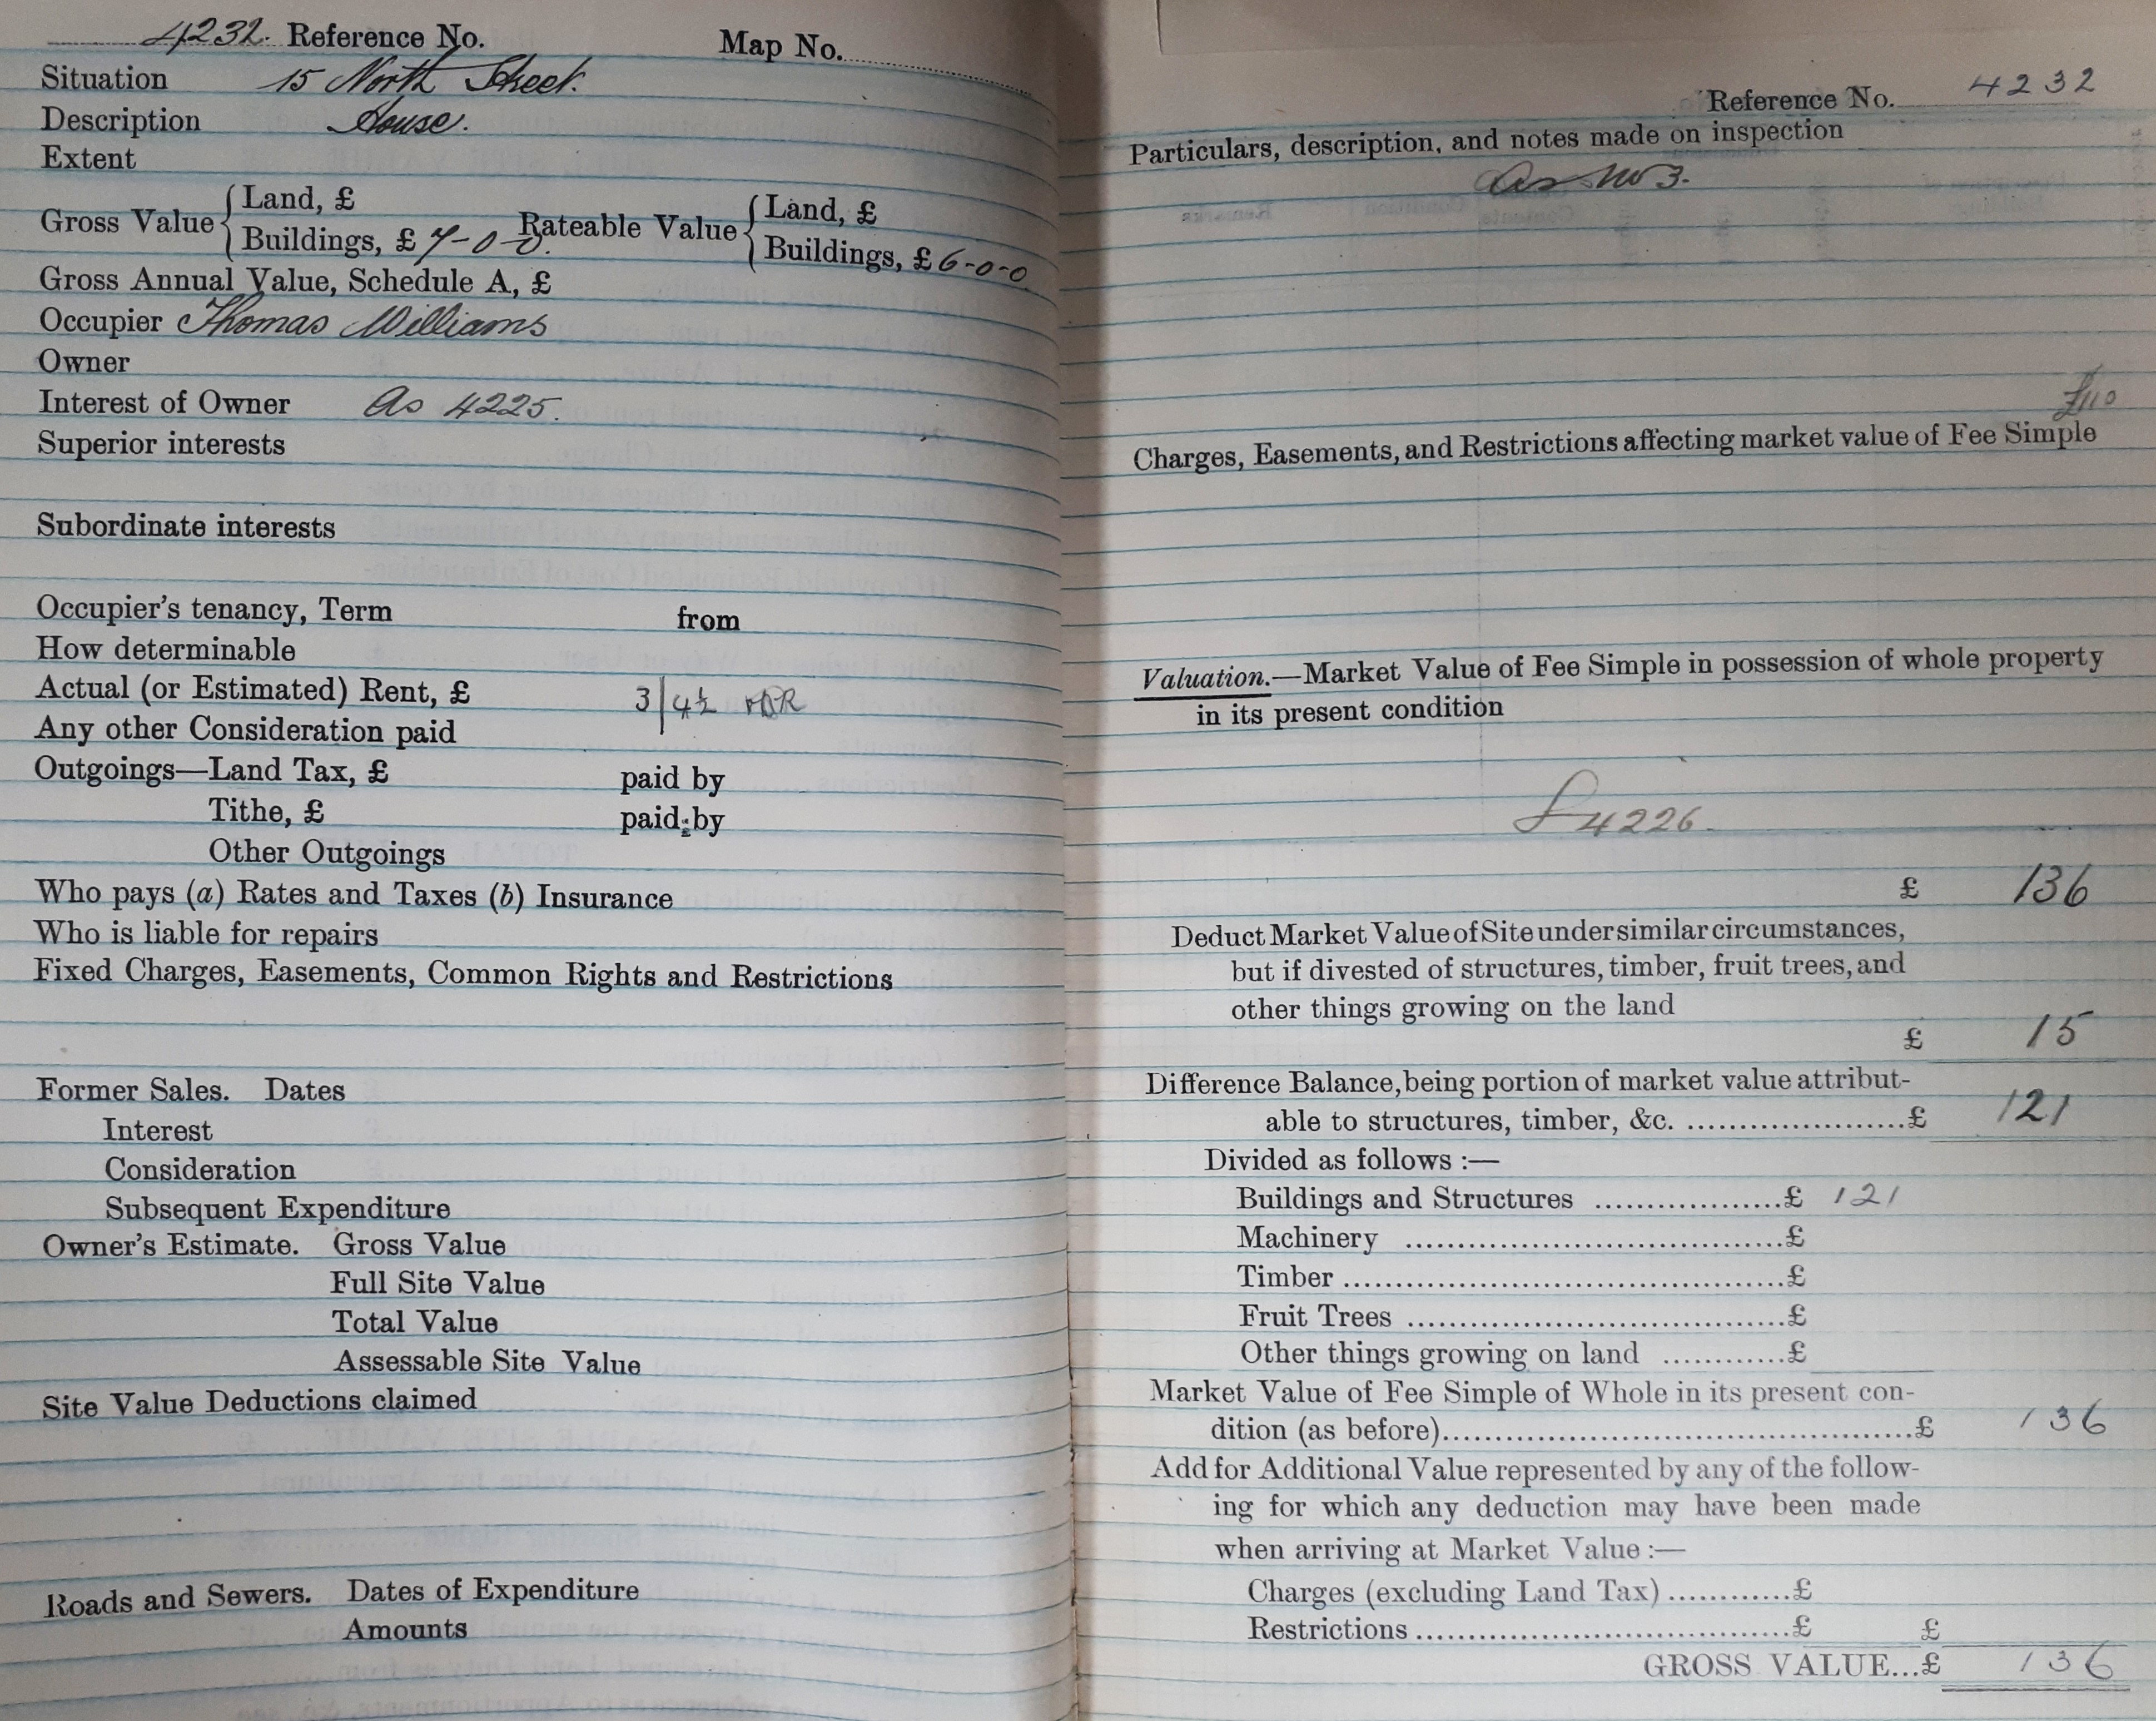 4232. Reference No. Map No.
Situation 15 North Street.
Description House.
Extent
Gross Value { Land, £ Rateable Value { Land, £
Buildings, £ 7-0-0. Buildings, £ 6-0-0
Gross Annual Value, Schedule A, £
Occupier Thomas Williams
Owner
Interest of Owner As 4225.
Superior interests
Subordinate interests
Occupier's tenancy, Term from
How determinable
Actual (or Estimated) Rent, £ 3/4½
Any other Consideration paid
Outgoings—Land Tax, £ paid by
Tithe, £ paid by
Other Outgoings
Who pays (a) Rates and Taxes (b) Insurance
Who is liable for repairs
Fixed Charges, Easements, Common Rights and Restrictions
Former Sales. Dates
Interest
Consideration
Subsequent Expenditure
Owner's Estimate. Gross Value
Full Site Value
Total Value
Assessable Site Value
Site Value Deductions claimed
Roads and Sewers. Dates of Expenditure
Amounts
Reference No. 4232
Particulars, description, and notes made on inspection
As No 3.
£110
Charges, Easements, and Restrictions affecting market value of Fee Simple
Valuation.—Market Value of Fee Simple in possession of whole property
in its present condition
£4226.
£ 136
Deduct Market Value of Site under similar circumstances,
but if divested of structures, timber, fruit trees, and
other things growing on the land
£ 15
Difference Balance, being portion of market value attribut-
able to structures, timber, &c. ......................£ 121
Divided as follows :—
Buildings and Structures ..................£ 121
Machinery ....................................£
Timber ..........................................£
Fruit Trees ....................................£
Other things growing on land ............£
Market Value of Fee Simple of Whole in its present con-
dition (as before)..............................................£ 136
Add for Additional Value represented by any of the follow-
ing for which any deduction may have been made
when arriving at Market Value :—
Charges (excluding Land Tax) ............£
Restrictions ....................................£ £
GROSS VALUE...£ 136